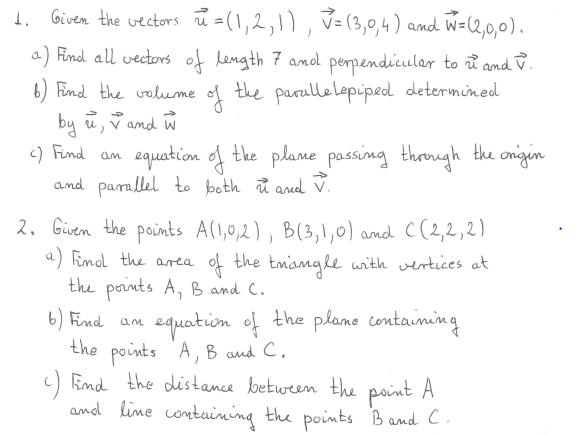 1. Given the vectors u⃗ = (1,2,1), v⃗ = (3,0,4) and w⃗ = (2,0,0).
a) Find all vectors of length 7 and perpendicular to u⃗ and v⃗.
b) Find the volume of the parallelepiped determined
by u⃗, v⃗ and w⃗
c) Find an equation of the plane passing through the origin
and parallel to both u⃗ and v⃗.
2. Given the points A(1,0,2), B(3,1,0) and C(2,2,2)
a) Find the area of the triangle with vertices at
the points A, B and C.
b) Find an equation of the plane containing
the points A, B and C.
c) Find the distance between the point A
and line containing the points B and C.